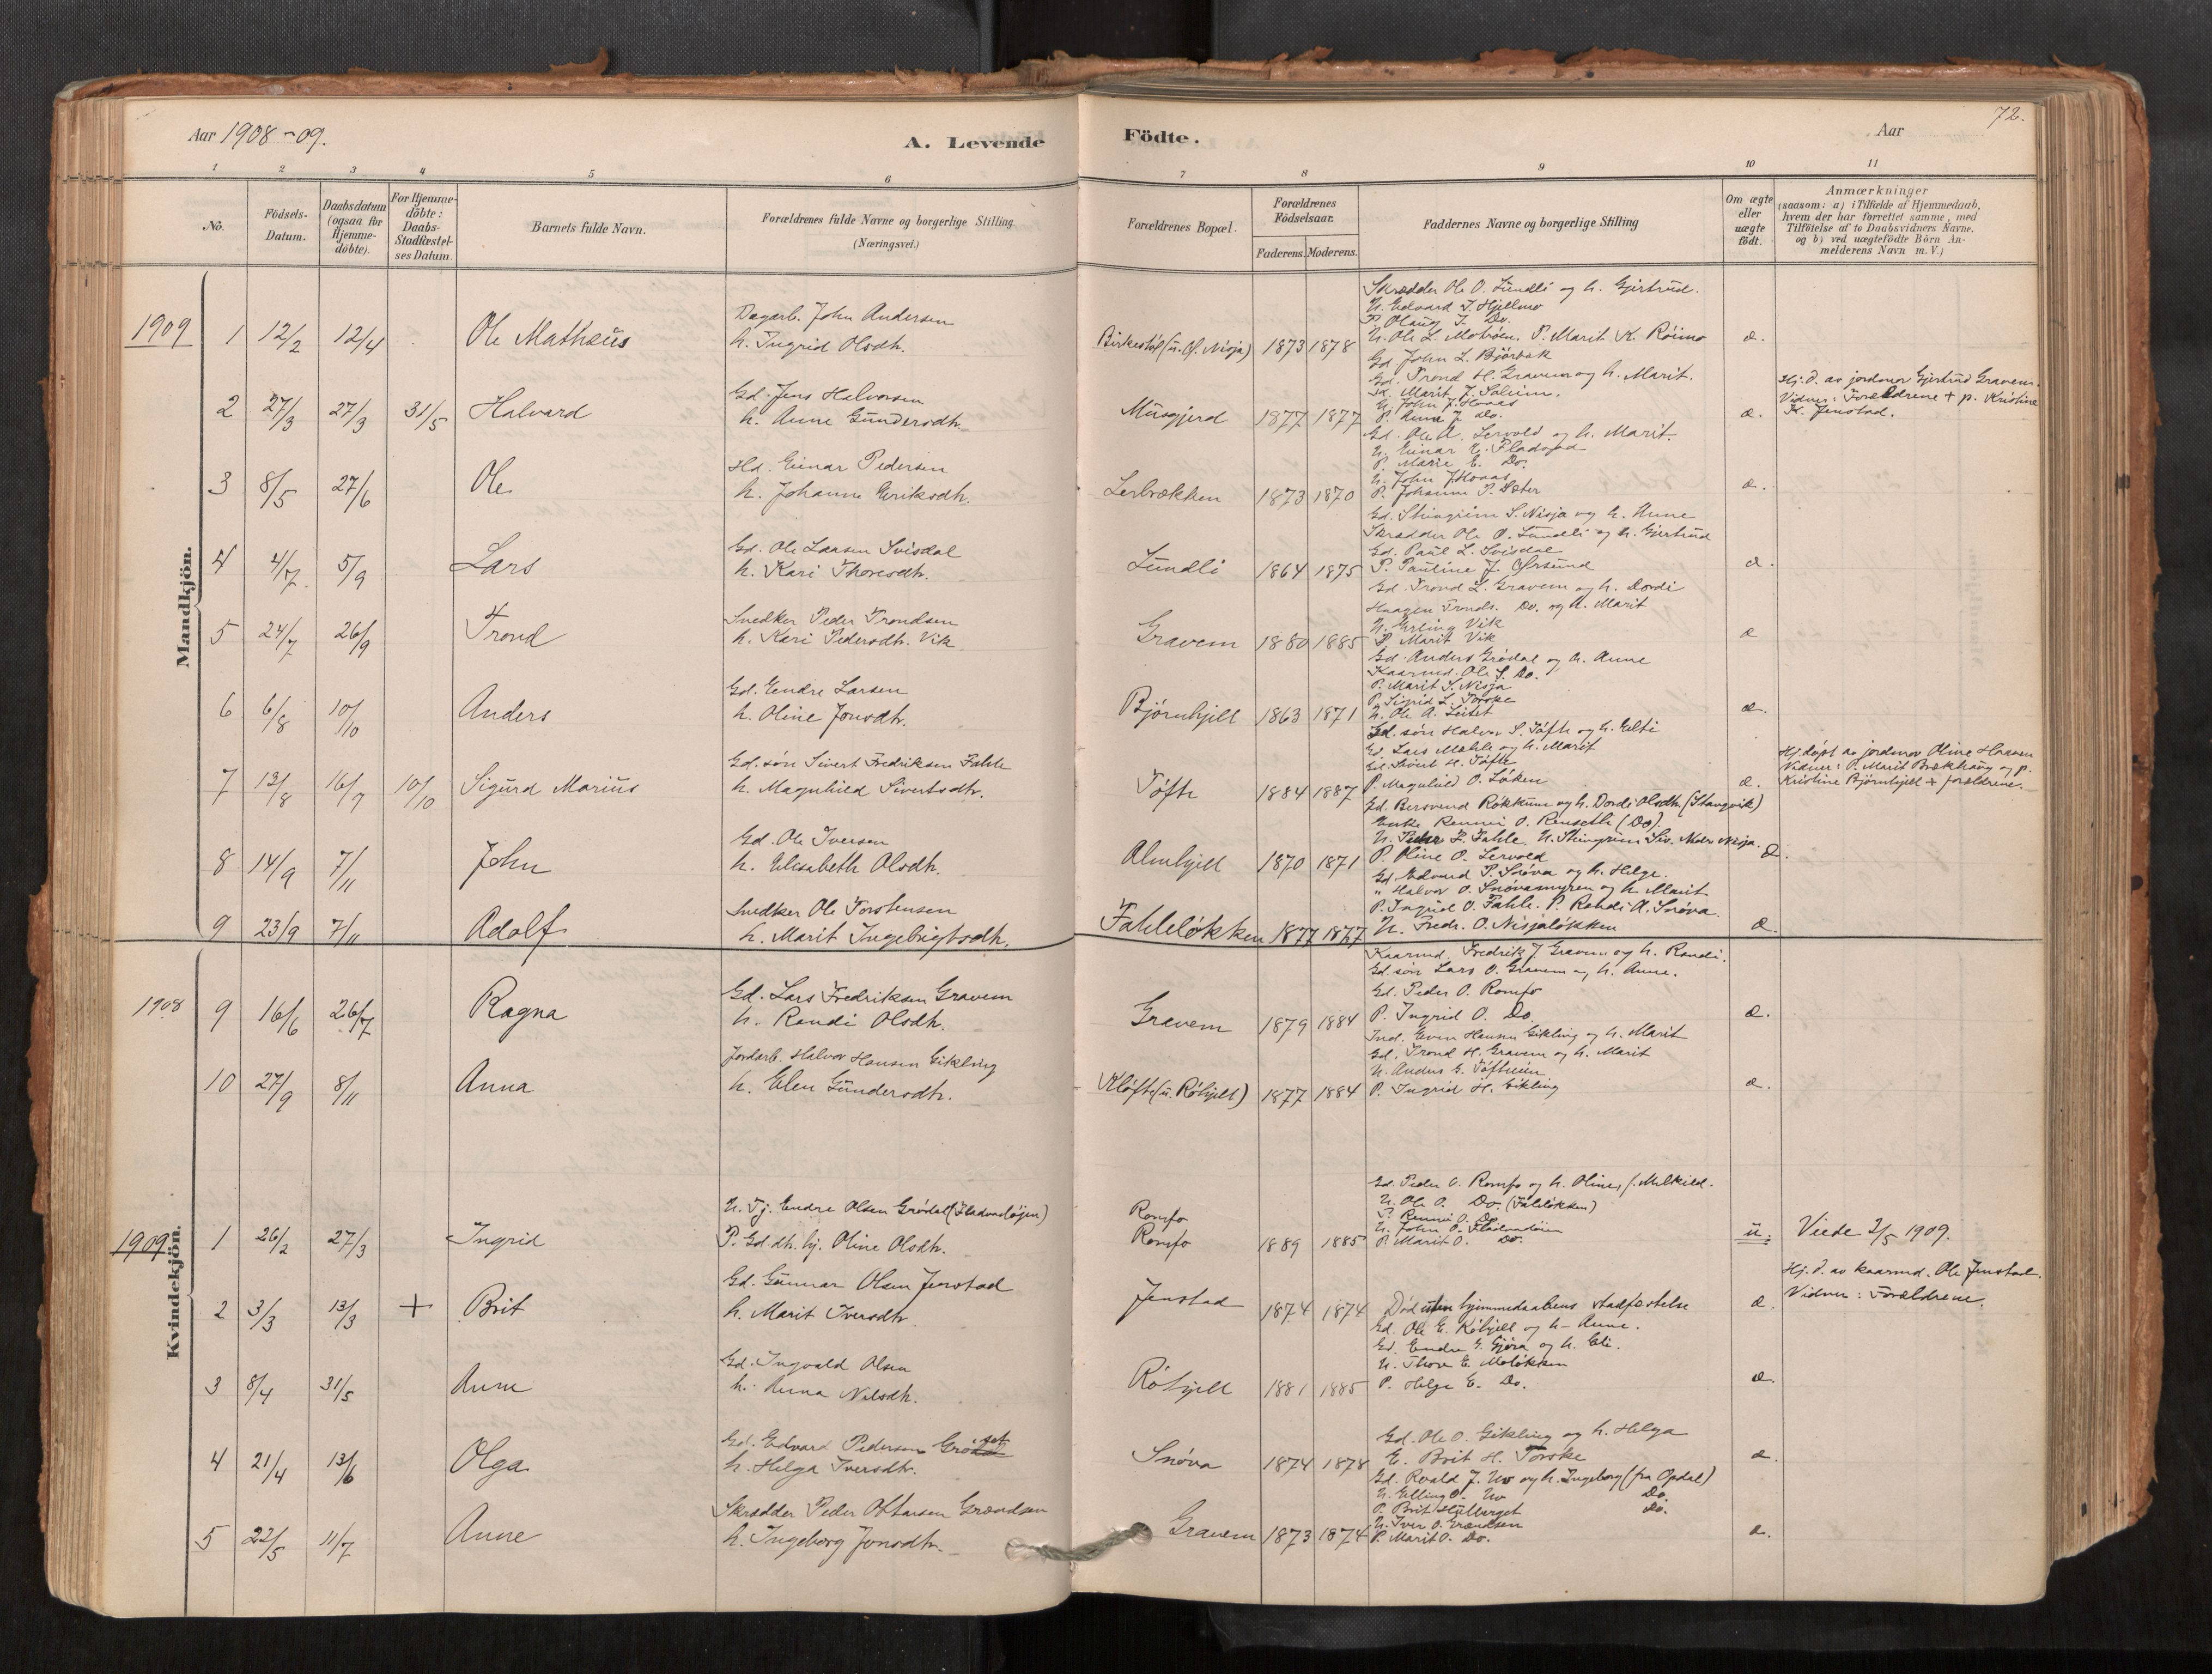 Aar 1908-09.
A. Levende
Födte.
Aar
72.
1 2 3 4 5 6 7 8 9 10 11
No.
Födsels-Datum.
Daabsdatum (ogsaa for Hjemme-döbte).
For Hjemme-döbte: Daabs-Stadfæstel-ses Datum.
Barnets fulde Navn.
Forældrenes fulde Navne og borgerlige Stilling
(Næringsvei.)
Forældrenes Bopæl.
Forældrenes Födselsaar.
Faderens. Moderens.
Faddernes Navne og borgerlige Stilling
Om ægte eller uægte födt.
Anmærkninger
(saasom: a) i Tilfælde af Hjemmedaab,
hvem der har forrettet samme, med
Tilföielse af to Daabsvidners Navne.
og b) ved uægtefödte Börn An-
melderens Navn m. V.)
Mandkjön.
1909 1 12/2 12/4 Ole Mathæus
Dagarb. John Andersen
h. Ingrid Olsdh.
Birkestøl (u. Nisja) 1873 1878
Skrædder Ole O. Lundli og h. Gjertrud.
U. Edvard J. Hjellmo
P. Olaug J. Do.
U. Ole L. Motrøen. P. Marit K. Röimo
Gd. John L. Björbæk
æ.
2 27/3 27/3 31/5 Halvard
Gd. Jens Halvorsen
h. Anne Gundersdh.
Musgjerd 1877 1877
Gd. Trond H. Gravem og h. Marit.
U. John J. Hoaas
P. Anne J. do.
æ.
Hj. d. av jordmor Gjertrud Gravem.
Vidner: Forældrene + p. Kristine
K. Jenstad.
3 8/5 27/6 Ole
Hd. Einar Pedersen
h. Johanne Eriksdh.
Lerbrækken 1873 1870
Gd. Ole A. Lervold og h. Marit.
U. Einar E. Fladvad
P. Marie E. Do.
U. John J. Hoaas
P. Johanne P. Sæter
æ.
4 4/7 5/9 Lars
Gd. Ole Larsen Svisdal
h. Kari Thoresdh.
Lundli 1864 1875
Gd. Steingrim S. Nisja og h. Anne
Skrædder Ole O. Lundli og h. Gjertrud
Gd. Paul L. Svisdal
P. Pauline J. Örsund
æ.
5 24/7 26/9 Trond
Snedker Peder Trondsen
h. Kari Pedersdh. Vik
Gravem 1880 1885
Gd. Trond L. Gravem og h. Dordi
Haagen Tronds. Do. og h. Marit
U. Erling Vik
P. Marit Vik
æ
6 6/8 10/10 Anders
Gd. Endre Larsen
h. Oline Jonsdh.
Bjørnhjell 1863 1871
Gd. Anders Grödal og h. Anne
Kaarmd. Ole S. Do.
P. Marit S. Nisja
P. Sigrid L. Torske
U. Ole A. Leitet
æ.
7 13/8 16/9 10/10 Sigurd Marius
Gd. søn Sivert Fredriksen Fahle
h. Magnhild Sivertsdh.
Töfte 1884 1887
Gd. søn Halvor S. Töfte og h. Eli
Gd. Lars Mæhle og h. Marit
Gd. Sivert H. Töfte
P. Magnhild O. Löken
æ.
Hj. døpt av jordmor Oline Hansen
Vidner: P. Marit Brækhaug og p.
Kristine Bjørnhjell + forældrene.
8 14/9 7/11 John
Gd. Ole Iversen
h. Elisabeth Olsdh.
Almhjell 1870 1871
Gd. Bersvend Røkkum og h. Dordi Olsdh. (Stangvik)
Enke Rennei O. Renseth (Do).
U. Peder F. Fahle. U. Steingrim Siv. Nisja.
P. Oline O. Lervold
æ.
9 23/9 7/11 Adolf
Snedker Ole Torstensen
h. Marit Ingebrigtsdh.
Fahleløkken 1877 1877
Gd. Edvard P. Snöva og h. Helge.
" Halvor O. Snövamyren og h. Marit
P. Ingrid O. Fahle. P. Randi A. Snöva.
U. Fredr. O. Nisjaløkken
æ.
Kvindekjön.
1908 9 16/6 26/7 Ragna
Gd. Lars Fredriksen Gravem
h. Randi Olsdh.
Gravem 1879 1884
Kaarmd. Fredrik J. Gravem og h. Randi.
Gd. søn Lars O. Gravem og h. Anne.
Gd. Peder O. Romfo
P. Ingrid O. Do.
æ.
10 27/9 8/11 Anna
Jordarb. Halvor Hansen Gikling
h. Elen Gundersdh.
Kløfte (u. Röhjell) 1877 1884
Ind. Even Hansen Gikling og h. Marit
Gd. Trond H. Gravem og h. Marit
U. Anders G. Töfteien
P. Ingrid H. Gikling
æ.
1909 1 26/2 27/3 Ingrid
U. Tj. Endre Olsen Grödal (Fladvadøien)
P. Gd. dh. hj. Oline Olsdh.
Romfo
Romfo 1889 1885
Gd. Peder O. Romfo og h. Oline, f. Melkild.
U. Ole O. Do. (Fahleløkken)
P. Rennei O. Do
U. John O. Fladvadøien
P. Marit O. Do.
u.
Viede 2/5 1909.
2 3/3 13/3 + Brit
Gd. Gunnar Olsen Jenstad
h. Marit Iversdh.
Jenstad 1874 1874
Død uten hjemmedaabens stadfæstelse
æ.
Hj. d. av kaarmd. Ole Jenstad.
Vidner: Forældrene.
3 8/4 31/5 Anne
Gd. Ingvald Olsen
h. Anna Nilsdh.
Röhjell 1881 1885
Gd. Ole E. Röhjell og h. Anne.
Gd. Endre E. Gjöra og h. Eli.
U. Thore E. Moløkken
P. Helge E. Do.
æ.
4 21/4 13/6 Olga
Gd. Edvard Pedersen Grödset
h. Helga Iversdh.
Snöva 1874 1878
Gd. Ole O. Gikling og h. Helga
E. Brit H. Torske
æ.
5 22/5 11/7 Anne
Skrædder Peder Ottarsen Grændsen
h. Ingeborg Jonsdh.
Gravem 1873 1874
Gd. Roald J. Uv og h. Ingeborg (fra Opdal)
U. Elling O. Uv Do.
P. Brit Hylberget Do.
U. Iver O. Grændsen
P. Marit O. Do.
æ.